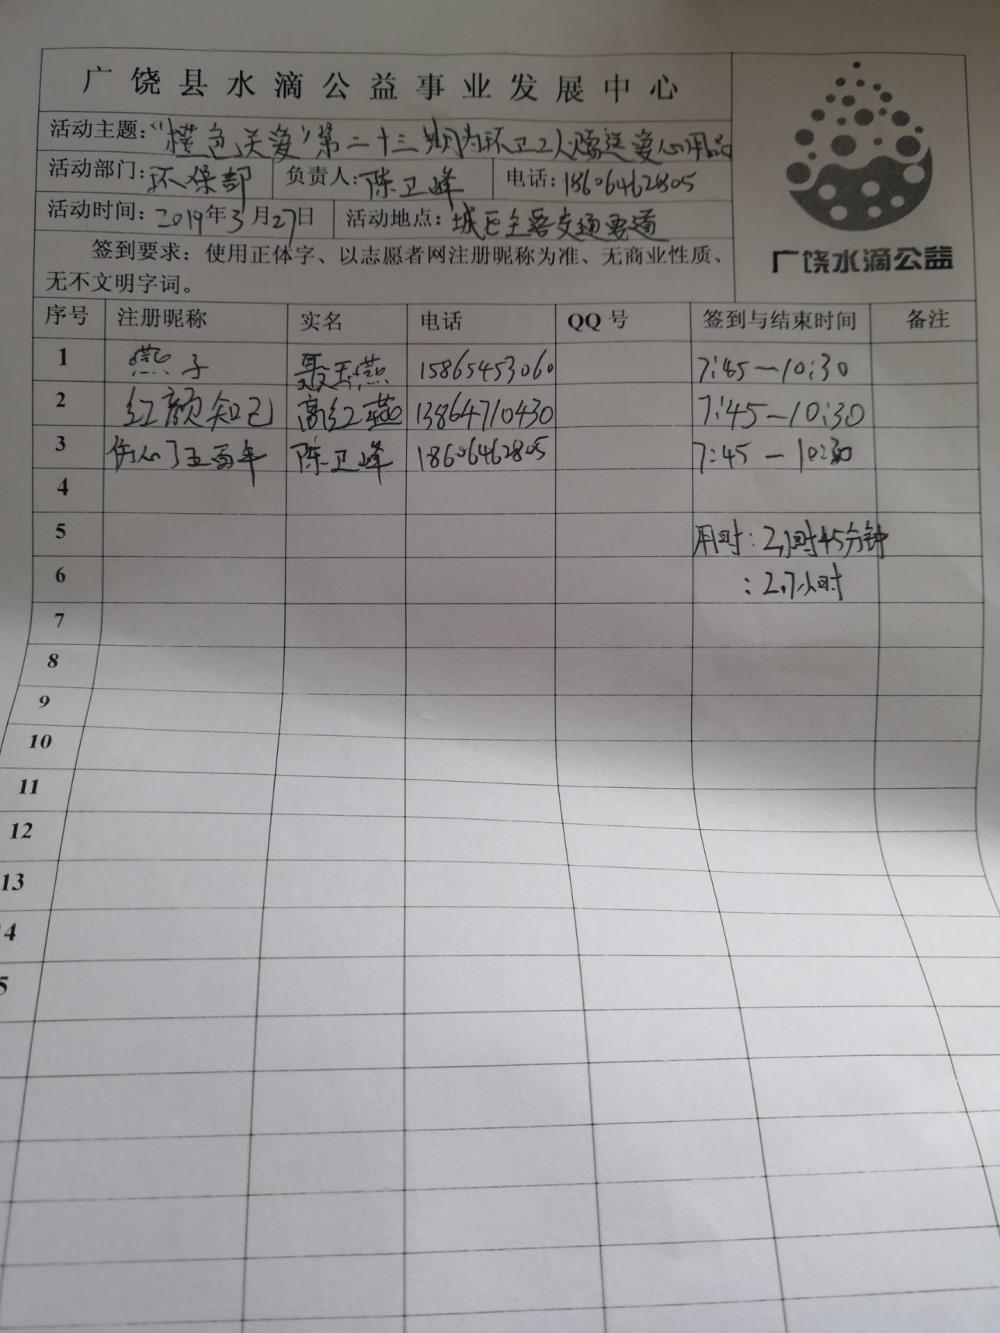 广饶县水滴公益事业发展中心
活动主题：“橙色关爱”第二十三期为环卫工人赠送爱心用品
活动部门：环保部 负责人：陈卫峰 电话：18606462805
活动时间：2019年3月27日 活动地点：城区主要交通要道
签到要求：使用正体字、以志愿者网注册昵称为准、无商业性质、
无不文明字词。
广饶水滴公益
序号 注册昵称 实名 电话 QQ号 签到与结束时间 备注
1 燕子 聂玉燕 15865453060 7:45—10:30
2 红颜知己 高红燕 13864710430 7:45—10:30
3 伤心了五百年 陈卫峰 18606462805 7:45—10:30
4
5 用时：2小时45分钟
6 ：2.7小时
7
8
9
10
11
12
13
4
5